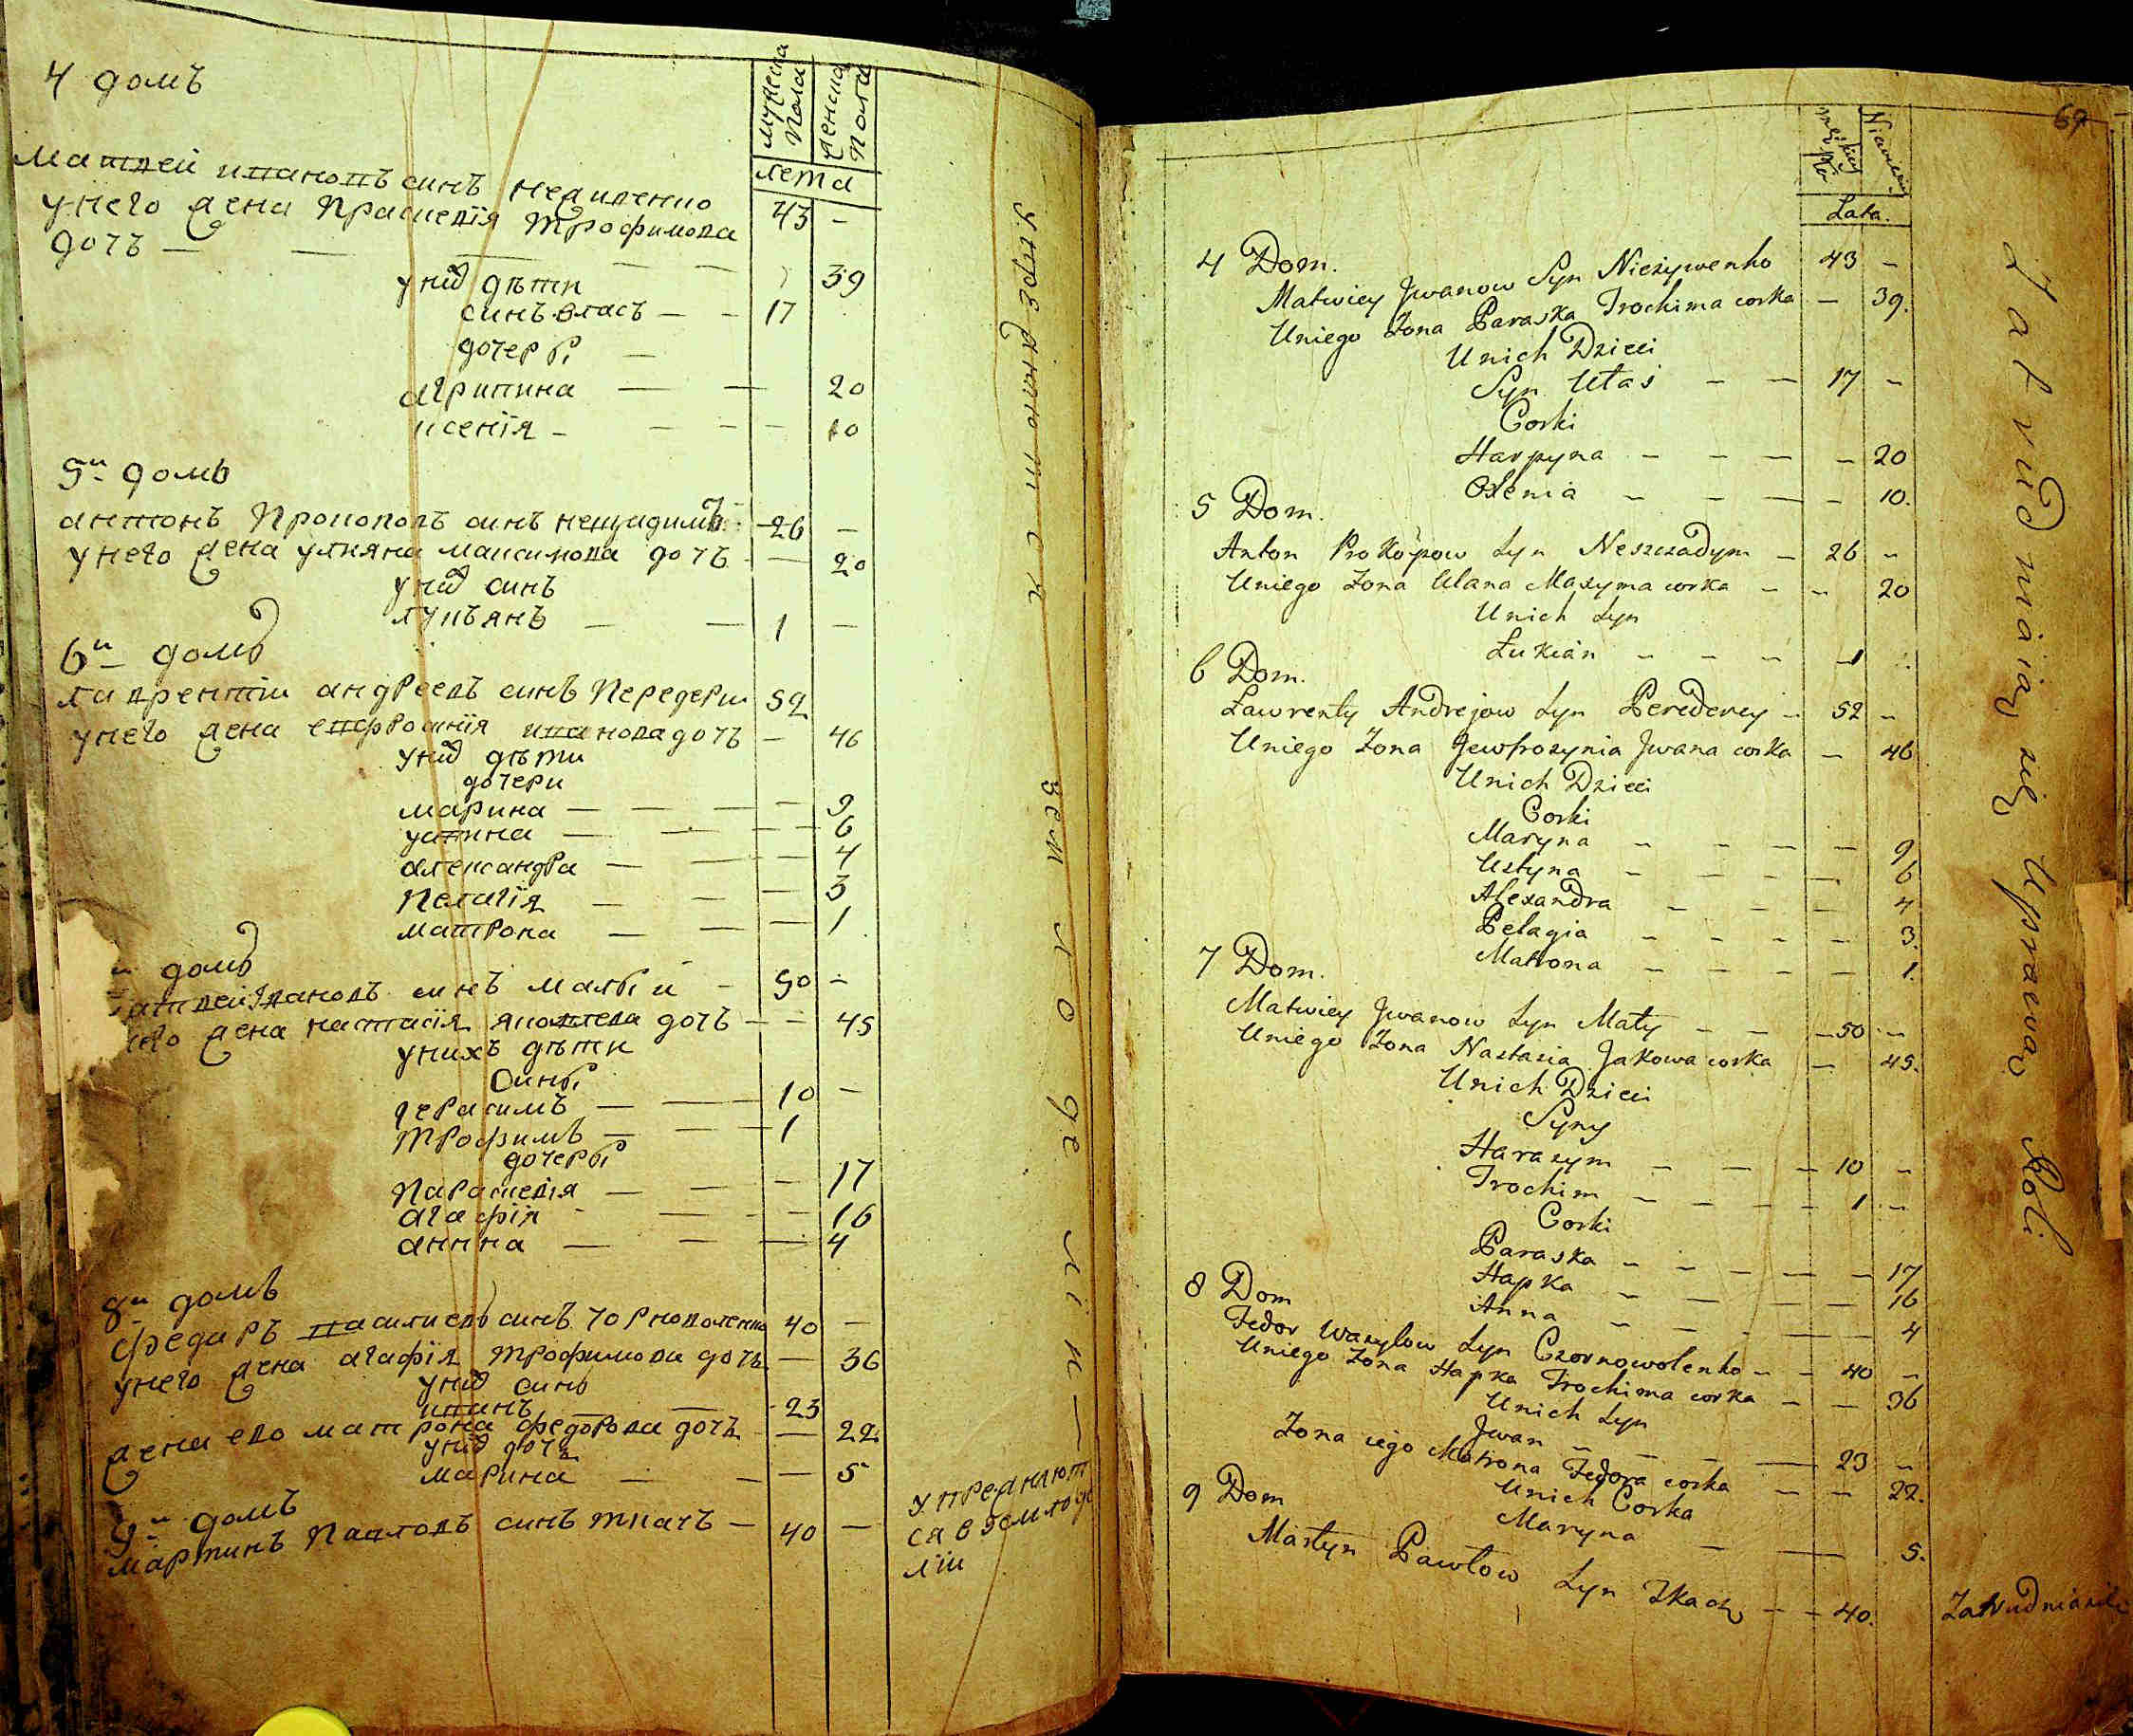 4 домъ
мужеска пола
женска пола
лета
матвей ивановъ синъ неживенко 43 -
унего жена Праскевїя трофимова
дочъ — — — — — 39
у них дѣти
синъ власъ — - 17
дочеры —
агрипина — — 20
ксенїя - — - - - 10
5й домъ
антонъ Прокоповъ синъ нещадимъ - 26 -
унего жена уляяна максимова дочъ - — 20
у них синъ
лукъянъ — — 1 —
6й домъ
лаврентїи андреевъ синъ Передерии 52
унего жена евфросинїя иванова дочъ — 46
у них дѣти
дочери
марина — — — - 9
устина — — - - 6
александра — — - 4
Пелагїя — — — 3
матрона — — — 1
домъ
матвей Ивановъ синъ малый - 50 -
жена настасїя яковлева дочъ - - 45
унихъ дѣти
Сины
герасимъ — — 10 -
трофимъ — — 1
дочеры
Параскевїя — — - 17
агафїя - — - 16
анна — — — 4
8й домъ
федоръ василиевъ синъ чорноволенко 40 —
унего жена агафїя трофимова дочъ — 36
у них синъ
иванъ — — 23
жена его матрона федорова дочъ — 22
у них дочъ
марина — - — 5
9й домъ
мартинъ Павловъ синъ ткачъ — 40 —
упражняют
ся в землѣде
лїи
69
Lata.
4 Dom.
Matwiey Jwanow Syn Nieżywenko 43 -
Uniego Żona Paraska Trochima corka - 39.
Unich Dzieci
Syn Ułas - — 17 -
Corki
Harpyna - - — - 20
Oxenia - - — - 10.
5 Dom.
Anton Prokopow Syn Neszczadym - 26 -
Uniego Żona Ulana Maxyma corka - - 20
Unich Syn
Łukian - - - 1
6 Dom.
Ławrenty Andrejow Syn Perederey - 52 -
Uniego Żona Jewfrozynia Jwana corka - 46
Unich Dzieci
Corki
Maryna - - - - - 9
Ustyna - - - - 6
Alexandra - - - 4
Pelagia - - - - 3.
Matrona - - - - 1.
7 Dom.
Matwiey Jwanow Syn Mały - - - 50 -
Uniego Żona Nastazia Jakowa corka - 45.
Unich Dzieci
Syny
Harazym - - - 10 -
Trochim - - - - 1 -
Corki
Paraska - - - - - 17
Hapka - - - - 16
Anna - - - — 4
8 Dom
Fedor Wasylow Syn Czornowolenko - - 40 -
Uniego Żona Hapka Trochima corka - - 36
Unich Syn
Jwan - - - — 23 -
Żona iego Matrona Fedora corka - - 22.
Unich Corka
Maryna - — 5.
9 Dom
Martyn Pawłow Syn Tkacz - - 40.
Zatrudniaią się Uprawą Roli